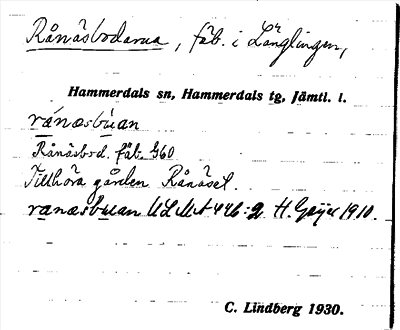 Rånäsbodarna, fäb. i Långlingen,
Hammerdals sn, Hammerdals tg, Jämtl. l.
ránæsbu̇an
Rånäsbod. fäb. G60
Tillhöra gården Rånäset.
ranæsbuan ULMA 446:2 H. Geijer 1910.
C. Lindberg 1930.